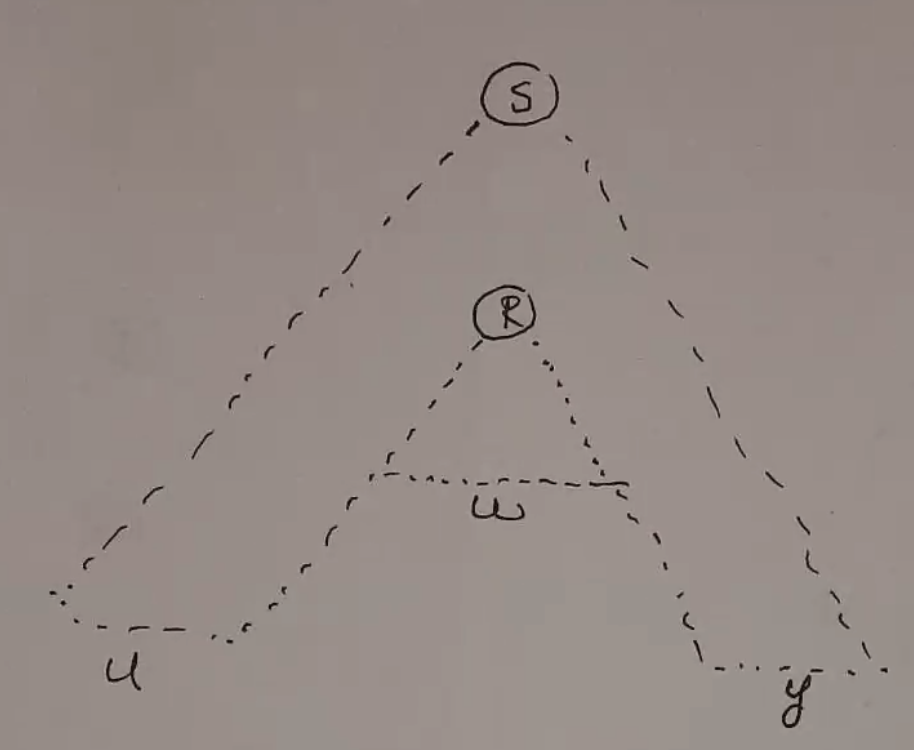 S
R
w
u
y